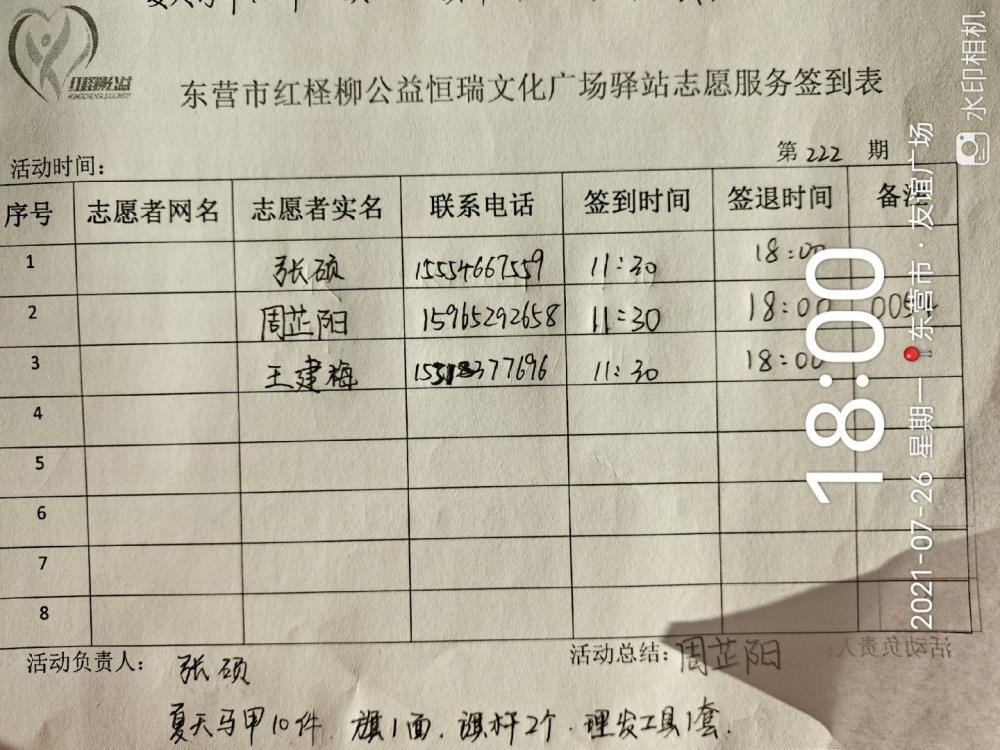 红柽柳公益
东营市红柽柳公益恒瑞文化广场驿站志愿服务签到表
第 222 期
活动时间：
序号 志愿者网名 志愿者实名 联系电话 签到时间 签退时间 备注
1 张硕 15554667559 11:30 18:00
2 周芷阳 15965292658 11:30 18:00
3 王建梅 11:30 18:00
4
5
6
7
8
活动负责人： 张硕 活动总结： 周芷阳
夏天马甲10件．旗1面．旗杆2个．理发工具1套．
水印相机
18:00
2021-07-26 星期一 东营市·友谊广场
活动负责人：